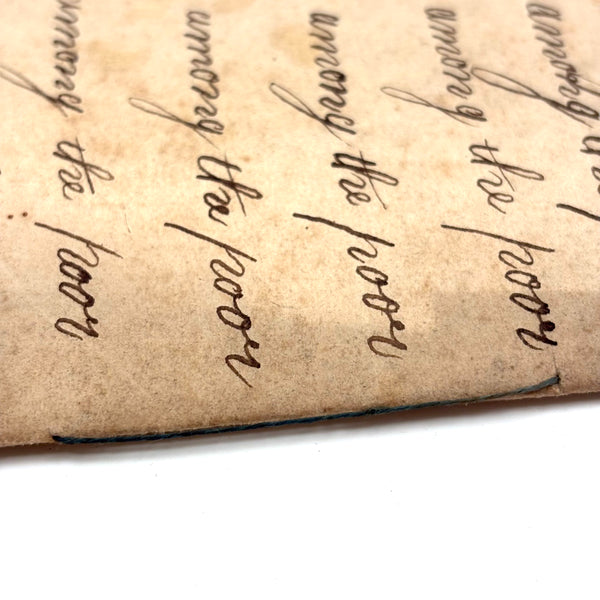 among
among the poor
among the poor
among the poor
among the poor